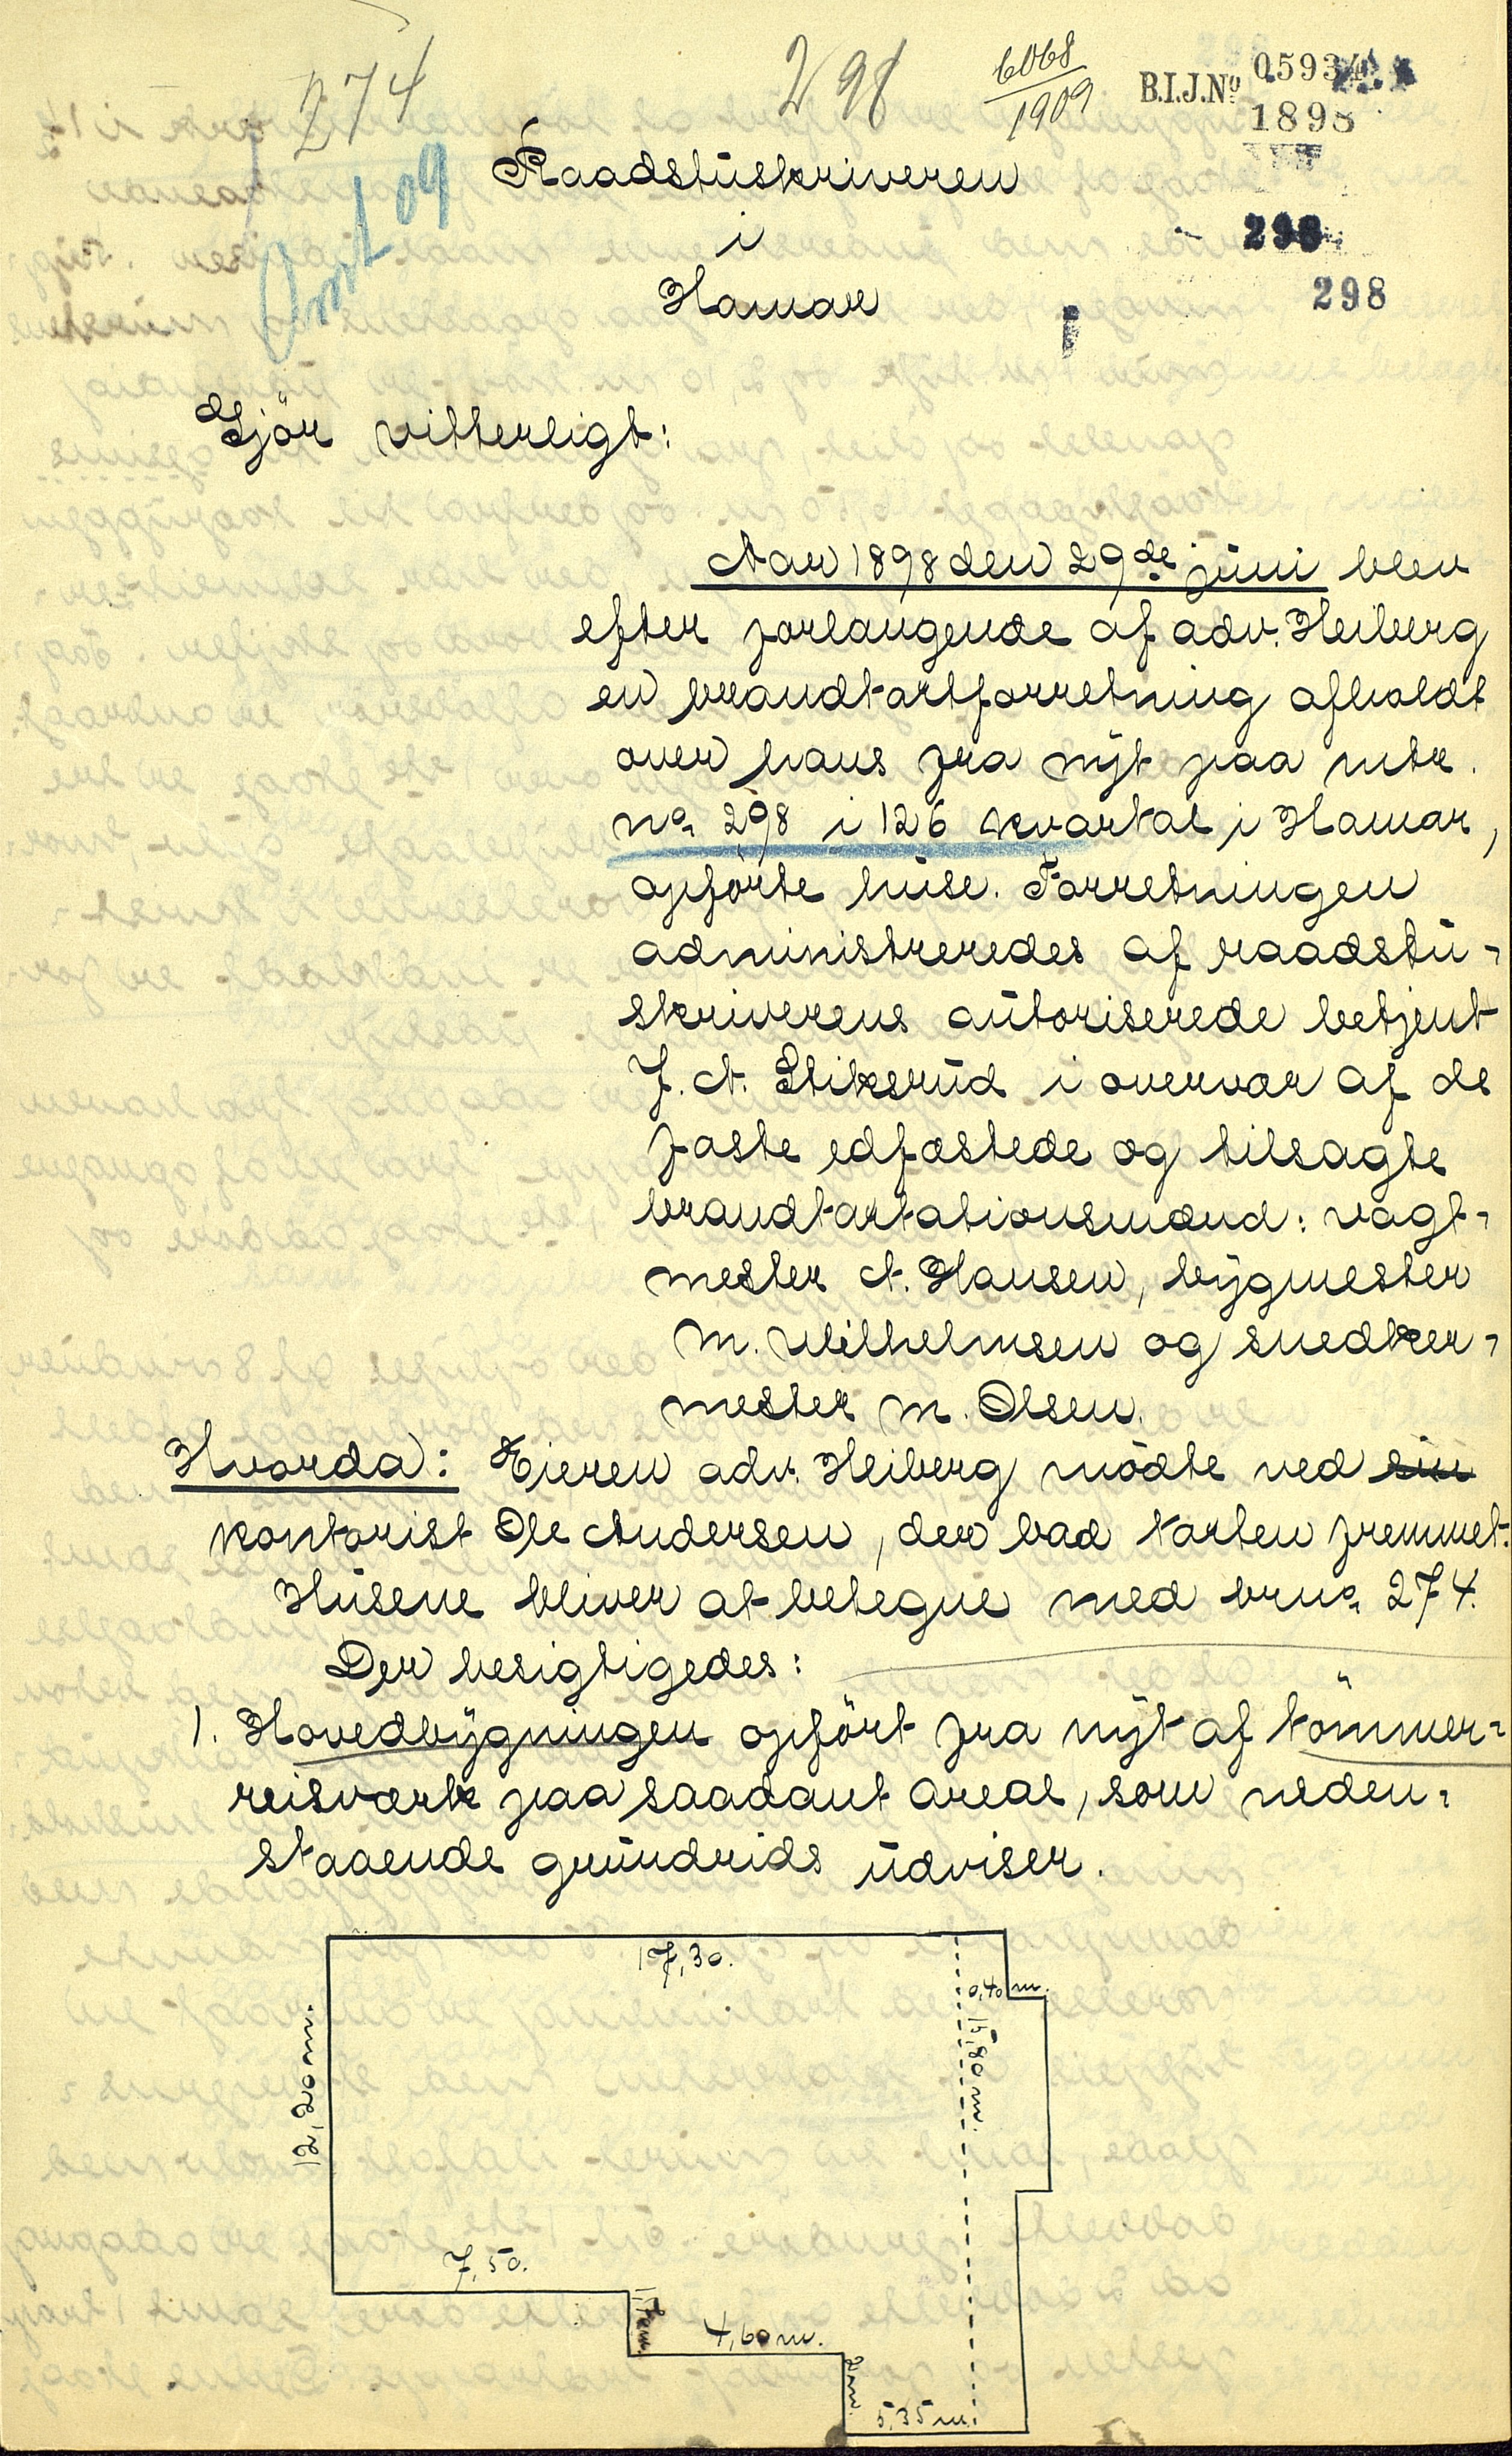 274
298
6068
1909
B.I.J.No 05934
1898
Omt. 09
298
298
Raadstüskriveren
i
Hamar
Gjör vitterligt:
Aar 1898 den 29de jüni blev
efter forlangende af adv. Heiberg
en brandtaxtforretning afholdt
over hans fra nÿt paa mtr.
no. 298 i 126 kvartal i Hamar,
opförte hüse. Forretningen
administreredes af raadstü-
skriverens aütoriserede betjent
J. A. Stiksrüd i overvær af de
faste edfæstede og tilsagte
brandtaxtationsmænd: vagt-
mester A. Hansen, bÿgmester
M. Wilhelmsen og snedker-
mester M. Olsen.
Hvorda: Eieren adv. Heiberg mödte ved sin
kontorist Ole Andersen, der bad taxten fremmet.
Hüsene bliver at betegne med brno. 274.
Der besigtigedes:
1. Hovedbÿgningen opfört fra nÿt af tömmer-
reisværk paa saadant areal, som neden-
staaende gründrids üdviser.
17,30.
0,40 m.
15,90 m.
12,20 m.
7,50.
1,17 m.
4,60 m.
2 m.
5,35 m.